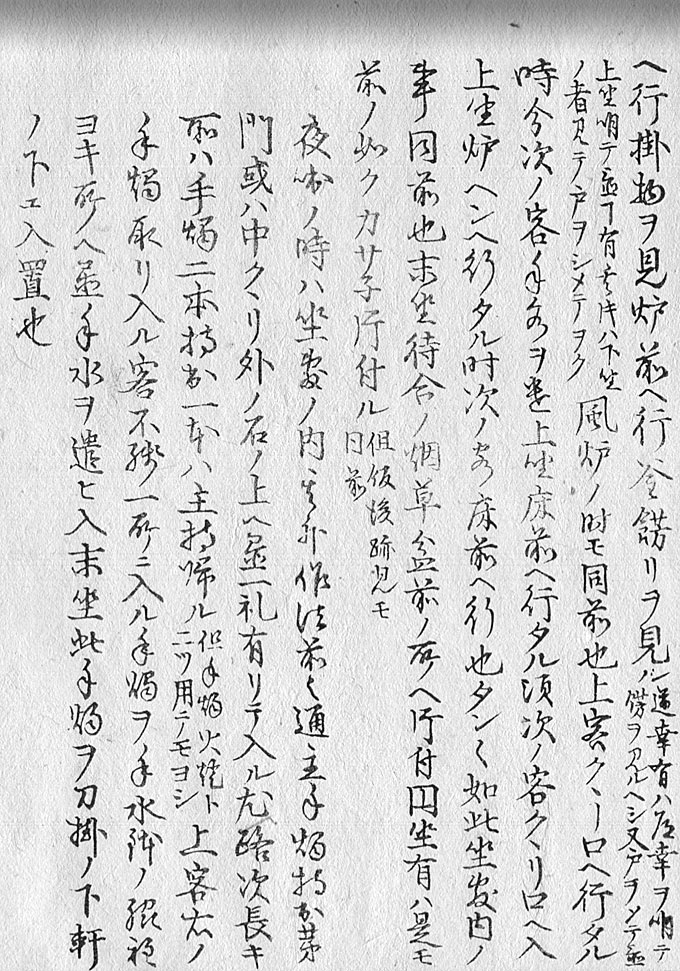 ヘ行掛物ヲ見炉前ヘ行釜餝リヲ見
シ道幸有ハ道幸ヲ明テ
ノ餝ヲ見ルヘシ又戸ヲシメテ置
上坐明テ置丁有其片ハ下坐
ノ者見テ戸ヲシメテヲク
風炉ノ時モ同前也上客クヽリ口ヘ行タル
時分次ノ客手水ヲ遣上坐床前ヘ行タル頃次ノ客クヽリ口ヘ入
上坐炉ヘンヘ行タル時次ノ客床前ヘ行也タン〱如此坐敷内ノ
事同前也末坐待合ノ烟草盆前ノ所ヘ片付円坐有ハ是モ
前ノ如クカサネ片付ル
但仮後跡見モ
同前
夜咄ノ時ハ坐敷ノ内其外作法前々通主手燭持出
門或ハ中クヽリ外ノ石ノ上ヘ置一礼有リテ入ル尤路次長キ
所ハ手燭二本持出一本ハ主持帰ル
但手燭火焼ト
二ツ用テモヨシ
上客右ノ
手燭取リ入ル客不残一所ニ入ル手燭ヲノ手水鉢ノ
ヨキ所ヘ置手水ヲ遣ヒ入末坐此手燭ヲ刀掛ノ下軒
ノ下エ入置也